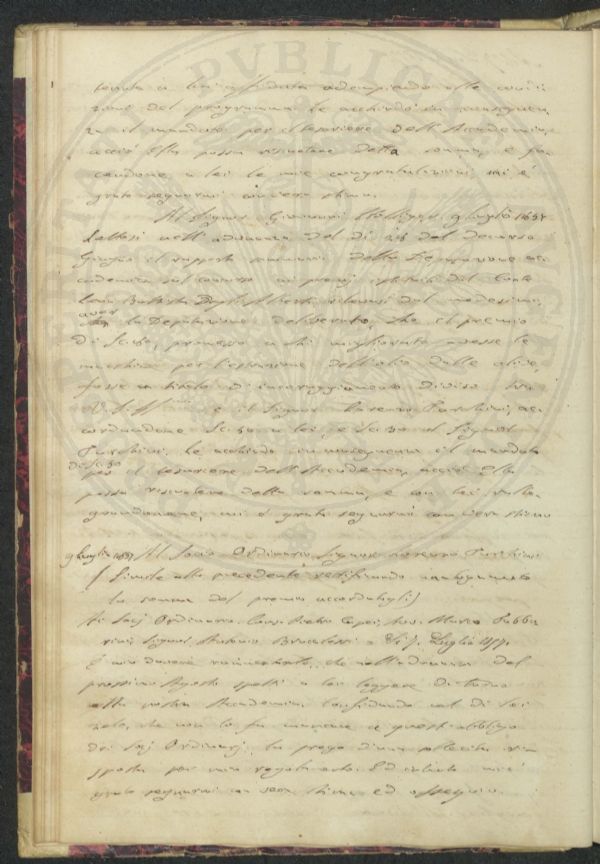 tenuta a lei affidata adempiendo alle condi-
zioni del programma. Le acchiudo in conseguen-
za il mandato per il tesoriere dell'Accademia,
acciò Ella possa riscuotere detta somma, e fa-
cendone a lei le mie congratulazioni, mi è
grato segnarmi con vera stima.
Al Signor Giovanni 9 Luglio 1857
Lettosi nell'adunanza del dì 28 del decorso
Giugno il rapporto della Deputazione ac-
cademica sul concorso ai premj del Conte
Leon Battista Degli Alberti, rilevasi dal medesimo,
aver la Deputazione deliberato, che il premio
di Sc. 60, promesso a chi migliorato avesse le
macchine per l'estrazione dell'olio dalle olive,
fosse a titolo di incoraggiamento diviso tra
V. S. Ill. e il Signor Lorenzo Turchini, ac-
cordandone Sc. 30 a lei, e Sc. 30 al Signor
Turchini. Le acchiudo in conseguenza il mandato
di Sc. 30
per il tesoriere dell'Accademia, acciò Ella
possa riscuotere detta somma, e con lei ralle-
grandomene, mi è grato segnarmi con vera stima
9 Luglio 1857. Al Socio Ordinario Signor Lorenzo Turchini
(Simile alla precedente rettificando
la somma del premio accordatogli)
Ai Socj Ordinarj Cons. Pietro Capei, Avv. Marco Tabba-
rini, Signor Antonio Brucalassi = Dì 7. Luglio 1857.
È mio dovere rammentarle, che nell'adunanza del
prossimo Agosto spetti a lei leggere
alla nostra Accademia. Confidando nel di Lei
zelo, che non la fa mancare a quest'obbligo
dei Socj Ordinarj, la prego d'una sollecita ri-
sposta per mia regola. Ed intanto mi è
grato segnarmi con vera stima ed ossequio.